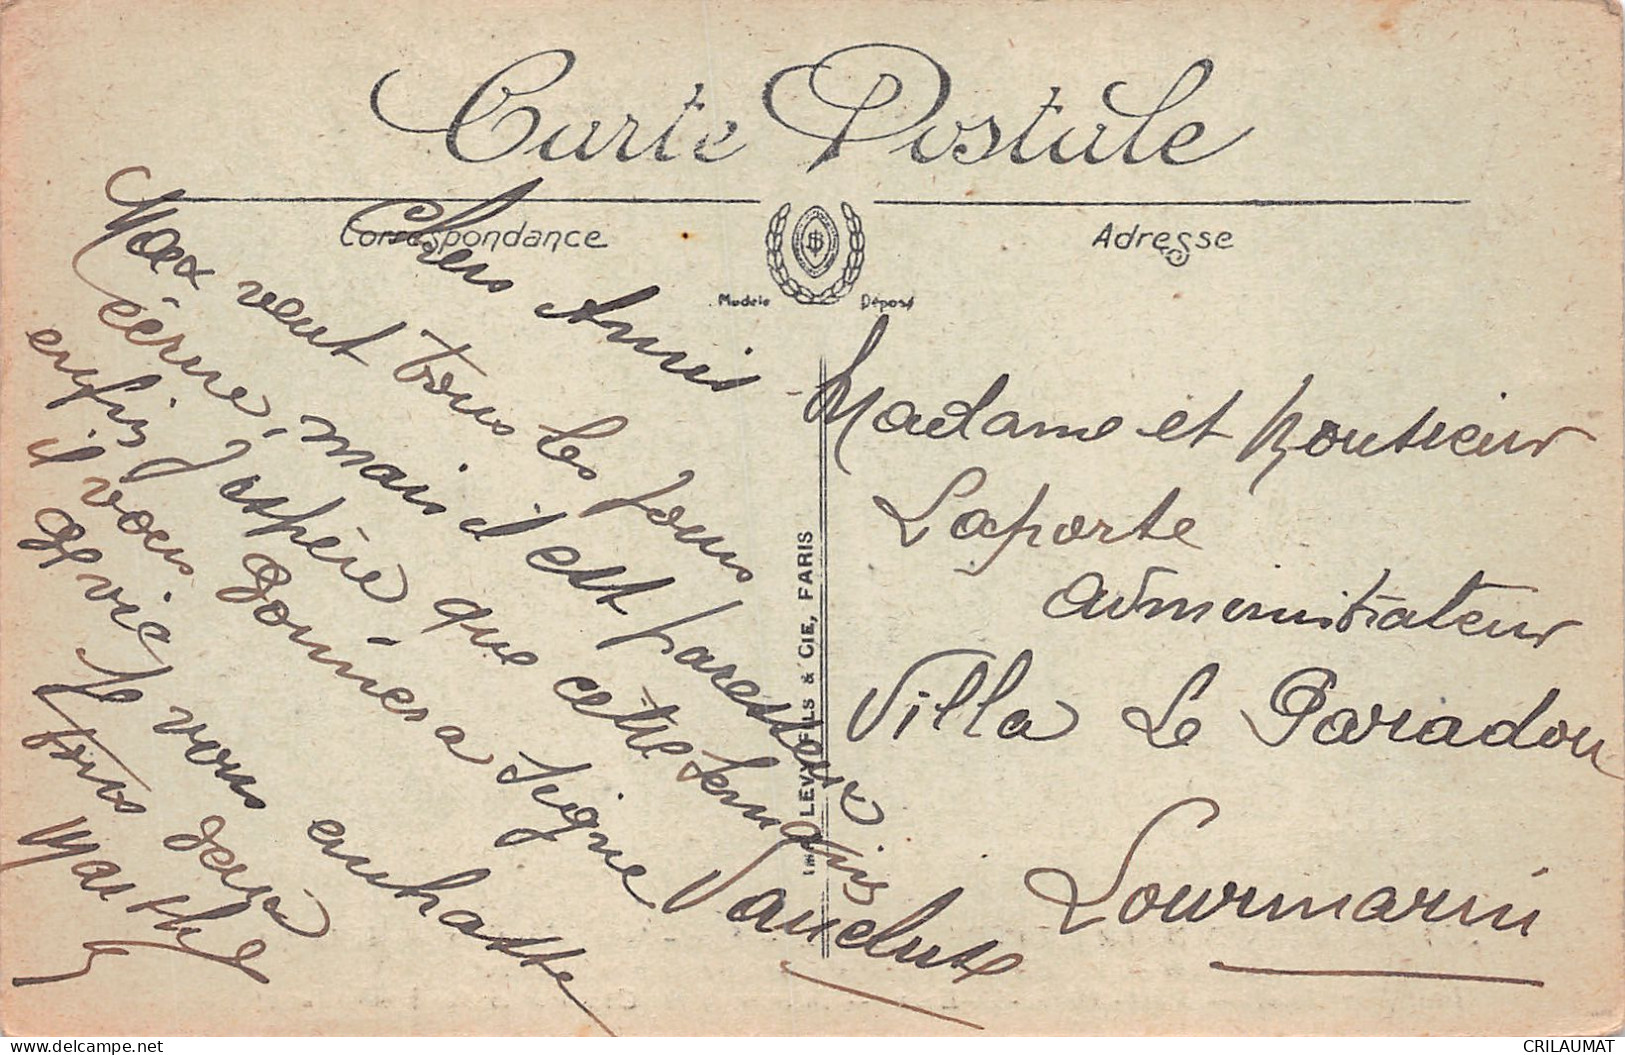 Carte Postale
Correspondance
Adresse
Modèle Déposé
Imp. LEVY FILS & CIE, PARIS
Chers Amis
Max veut tous les jours
écrire, mais il est paresseux
enfin j'espère que cette semaine
il vous donnera signe
de vie Je vous embrasse
tous deux
Marthe
Madame et Monsieur
Laporte
administrateur
Villa Le Paradou
Lourmarin
Vaucluse
CRILAUMAT